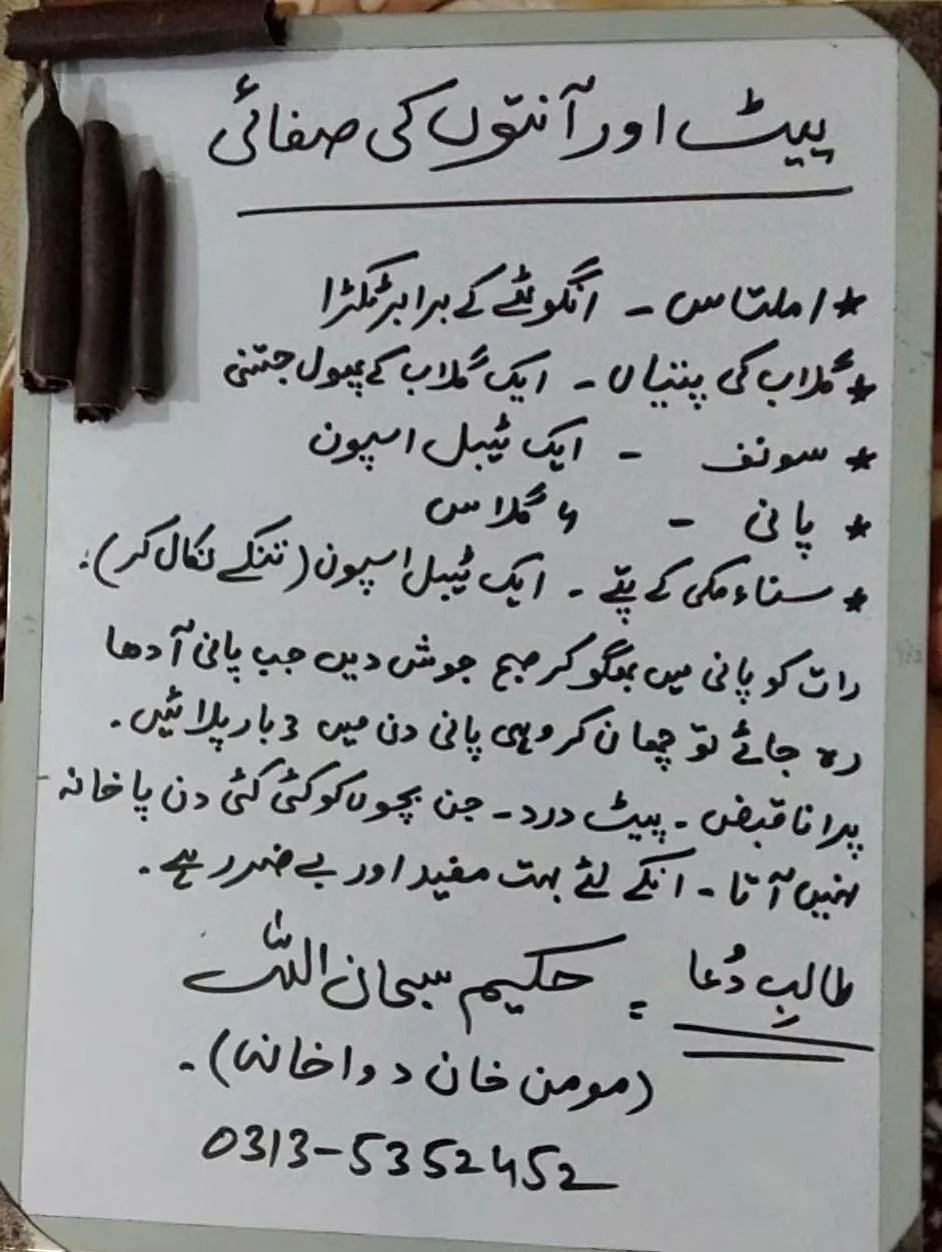 پیٹ اور آنتوں کی صفائی
* املتاس - انگوٹھے کے برابر ٹکڑا
* گلاب کی پتیاں - ایک گلاب کے پھول جتنی
* سونف - ایک ٹیبل اسپون
* پانی - ۴ گلاس
* سناء مکی کے پتے - ایک ٹیبل اسپون (تنکے نکال کر)۔
رات کو پانی میں بھگو کر صبح جوش دیں جب پانی آدھا
رہ جائے تو چھان کر وہی پانی دن میں 3 بار پلائیں۔
پرانا قبض - پیٹ درد - جن بچوں کو کئی کئی دن پاخانہ
نہیں آتا - انکے لئے بہت مفید اور بے ضرر ہے۔
طالبِ دُعا = حکیم سبحان اللہ
(مومن خان دواخانہ)۔
0313-5352452